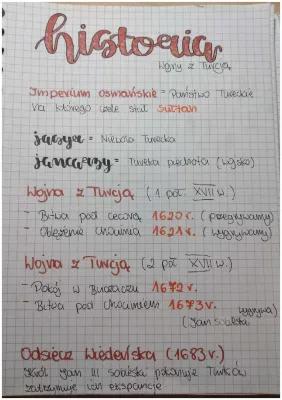 historia
Wojny z Turcją
Imperium osmańskie = Państwo Tureckie
Na którego czele stał Sułtan
jasyr = Niewola Turecka
janczarzy = Turecka piechota (wojsko)
Wojna z Turcją (1 poł. XVII w.)
- Bitwa pod Cecorą 1620 r. (przegrywamy)
- Oblężenie Chocimia 1621 r. (wygrywamy)
Wojna z Turcją (2 poł XVII w.)
- Pokój w Buczaczu 1672 r.
- Bitwa pod Chocimiem 1673 r. (wygrywa)
(Jan Sobieski
Odsiecz Wiedeńska (1683 r.)
Król Jan III Sobieski pokonuje Turków
zatrzymuje ich ekspansję